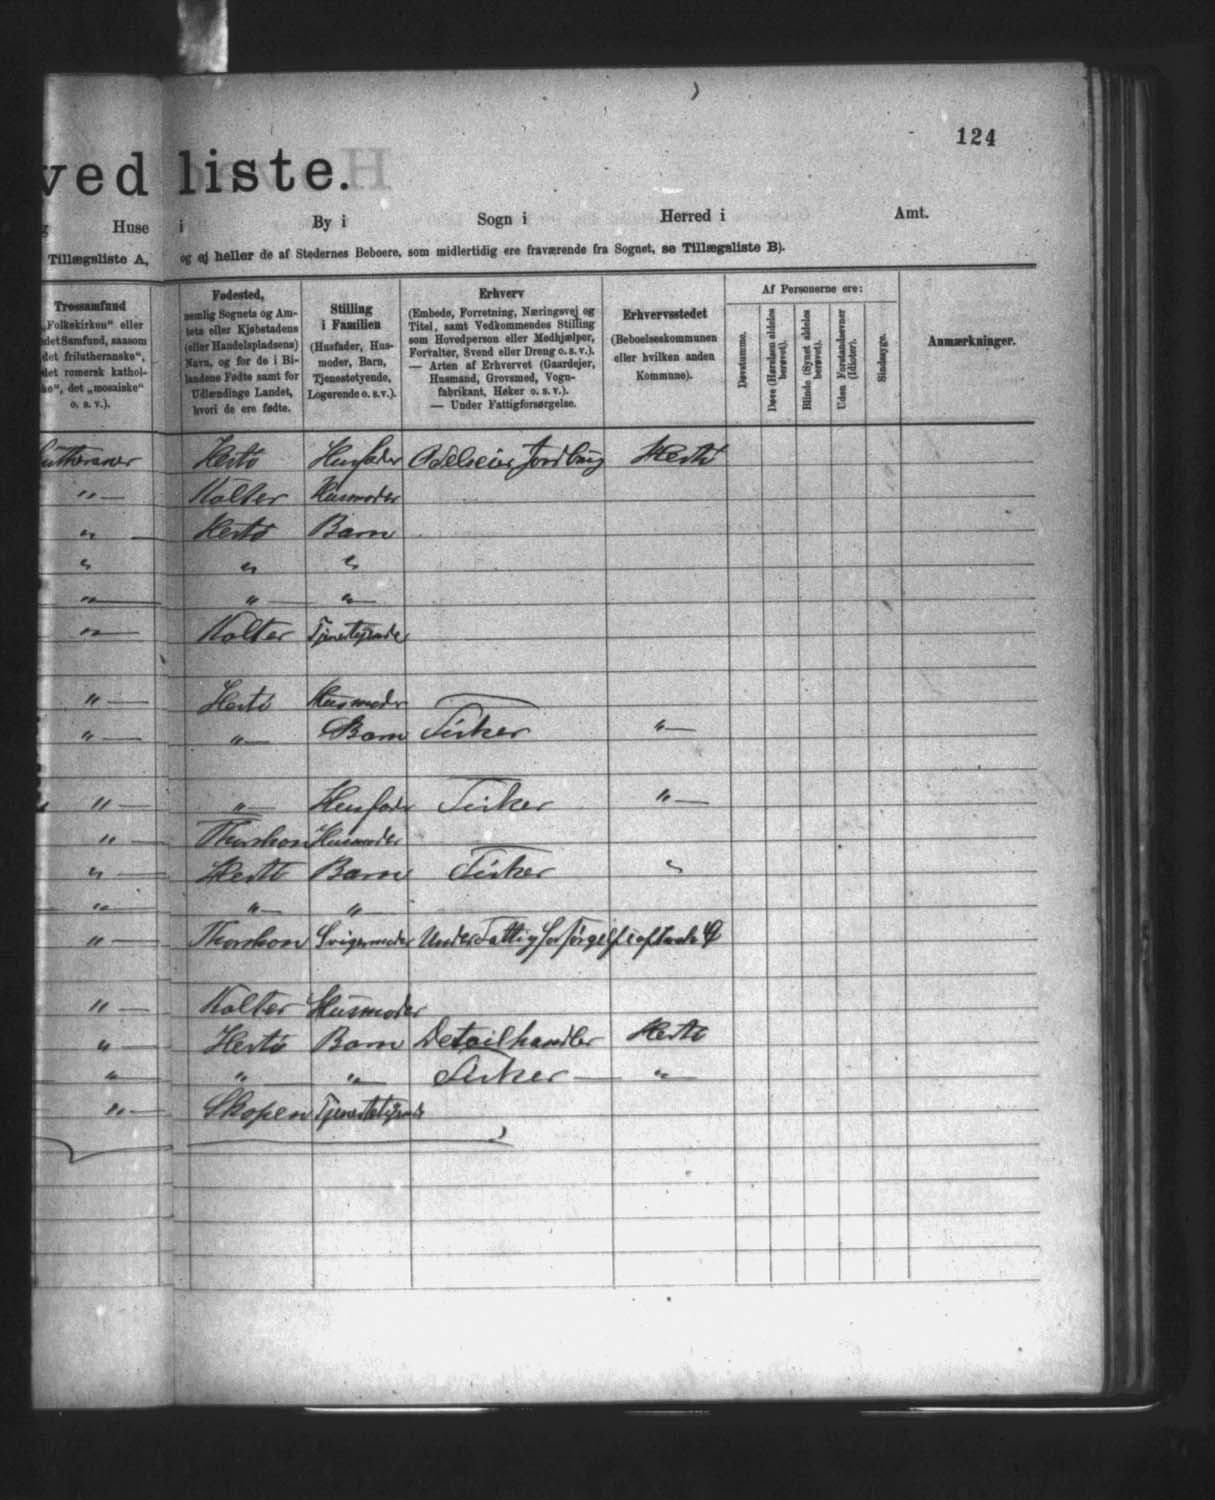 124
ved liste.
Huse i By i Sogn i Herred i Amt.
Tillægsliste A, og ej heller de af Stedernes Beboere, som midlertidig ere fraværende fra Sognet, se Tillægsliste B).
Trossamfund
„Folkekirken“ eller
det Samfund, saasom
det frilutheranske“,
det romersk kathol-
ke“, det „mosaiske“
o. s. v.).
Fødested,
nemlig Sognets og Am-
tets eller Kjøbstadens
(eller Handelspladsens)
Navn, og for de i Bi-
landene Fødte samt for
Udlændinge Landet,
hvori de ere fødte.
Stilling
i Familien
(Husfader, Hus-
moder, Barn,
Tjenestetyende,
Logerende o. s.v.).
Erhverv
(Embede, Forretning, Næringsvej og
Titel, samt Vedkommendes Stilling
som Hovedperson eller Medhjælper,
Forvalter, Svend eller Dreng o. s. v.).
— Arten af Erhvervet (Gaardejer,
Husmand, Grovsmed, Vogn-
fabrikant, Høker o. s. v.).
— Under Fattigforsørgelse.
Erhvervsstedet
(Beboelseskommunen
eller hvilken anden
Kommune).
Af Personerne ere:
Døvstumme.
Døve (Hørelsen aldeles
berøvet).
Blinde (Synet aldeles
berøvet).
Uden Forstandsevner
(Idioter).
Sindssyge.
Anmærkninger.
Lutheraner Hestö Husfader Odelseier Jordbrug Hestö
"— Kolter Husmoder
" — Hestö Barn
" " "
"— "— "—
"— Kolter Tjenestetyende
"— Hestö Husmoder
"— "— Barn Fisker "—
"— "— Husfader Fisker "—
"— Thorshon Husmoder
"— Hestö Barn Fisker "
"— "— "—
"— Thorshon Svigermoder Under Fattigforsörgelse
"— Kolter Husmoder
"— Hestö Barn Detailhandler Hestö
"— "— "— Fisker — "—
"— Skopen Tjenestetyende